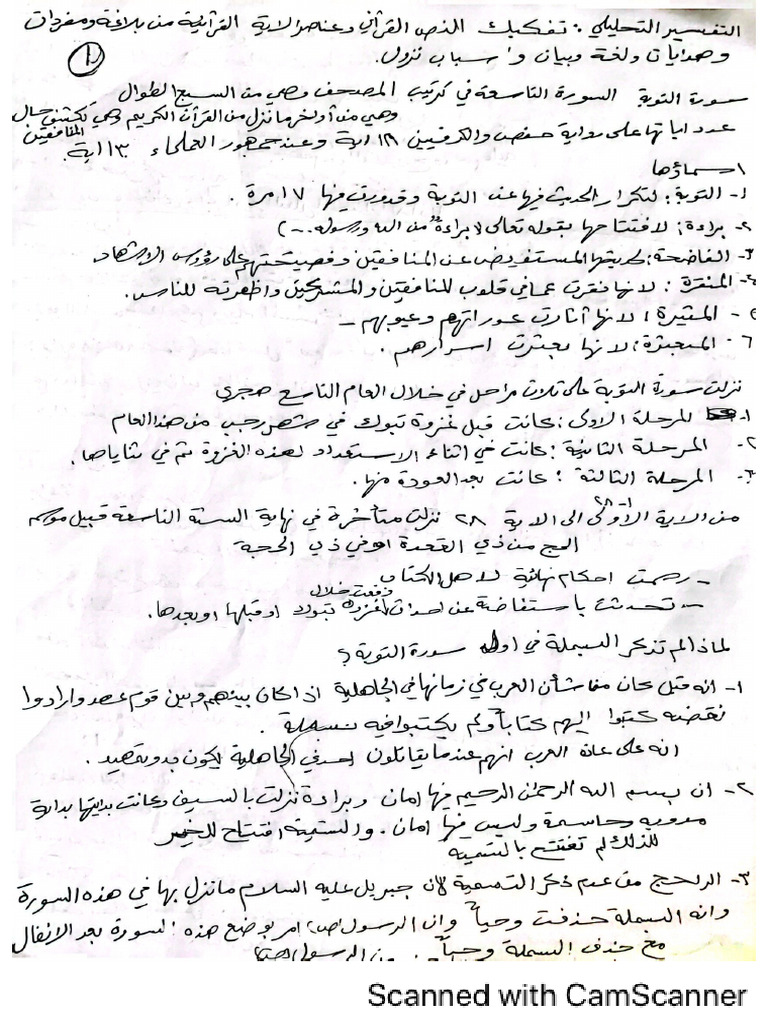 التفسير التحليلي: تفكيك النص القرآني وعناصر الاية القرآنية من بلاغة ومفردات
وهدايات ولغة وبيان واسباب نزول.
١
سورة التوبة السورة التاسعة في ترتيب المصحف وهي من السبع الطوال
وهي من أواخر ما نزل من القرآن الكريم وهي تكشف حال المنافقين
عدد اياتها على رواية حفص والكوفيين ١٢٩ اية وعند جمهور العلماء ١٣٠ اية.
اسماؤها
١- التوبة: لتكرار الحديث فيها عن التوبة وقد وردت فيها ١٧ مرة.
٢- براءة: لافتتاحها بقوله تعالى (براءة من الله ورسوله...)
٣- الفاضحة: لحديثها المستفيض عن المنافقين وفضيحتهم على رؤوس الاشهاد
٤- المنقرة: لانها نقرت عما في قلوب المنافقين والمشركين واظهرته للناس.
٥- المثيرة: لانها أثارت عوراتهم وعيوبهم -
٦- المبعثرة: لانها بعثرت اسرارهم.
نزلت سورة التوبة على ثلاث مراحل في خلال العام التاسع هجري
١- المرحلة الاولى: كانت قبل غزوة تبوك في شهر رجب من هذا العام
٢- المرحلة الثانية: كانت في اثناء الاستعداد لهذه الغزوة ثم في ثناياها.
٣- المرحلة الثالثة: كانت بعد العودة منها.
من الاية الأولى الى الاية ٢٨ نزلت متأخرة في نهاية السنة التاسعة قبيل موسم
الحج من ذي القعدة او في ذي الحجة
- رسمت احكام نهائية لاهل الكتاب
- تحدثت باستفاضة عن احداث وقعت خلال غزوة تبوك او قبلها او بعدها.
لماذا لم تذكر البسملة في اول سورة التوبة؟
١- انه قيل كان من شأن العرب في زمانها في الجاهلية اذا كان بينهم وبين قوم عهد وارادوا
نقضه كتبوا اليهم كتاباً ولم يكتبوا فيه بسملة.
انه على عادة العرب انهم عندما يقاتلون في الجاهلية يكون
٢- ان بسم الله الرحمن الرحيم فيها امان وبراءة نزلت بالسيف وكانت بدايتها بداية
مدوية وحاسمة وليس فيها امان. والتسمية افتتاح للخير
لذلك لم تفتتح بالتسمية
٣- الراجح من عدم ذكر التسمية لأن جبريل عليه السلام ما نزل بها في هذه السورة
وانه البسملة حذفت وحياً وان الرسول (ص) امر بوضع هذه السورة بعد الانفال
مع حذف البسملة وحياً.
Scanned with CamScanner